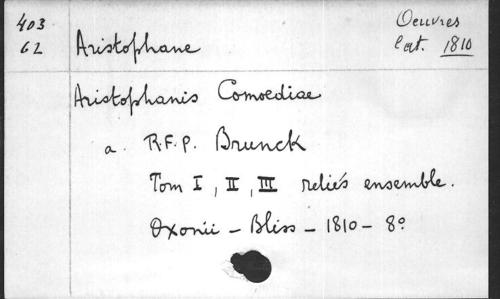 403
62
Aristophane
Oeuvres
lat. 1810
Aristophanis Comoediae
a R.F.P. Brunck
Tom I, II, III reliés ensemble.
Oxonii – Bliss – 1810 – 8°